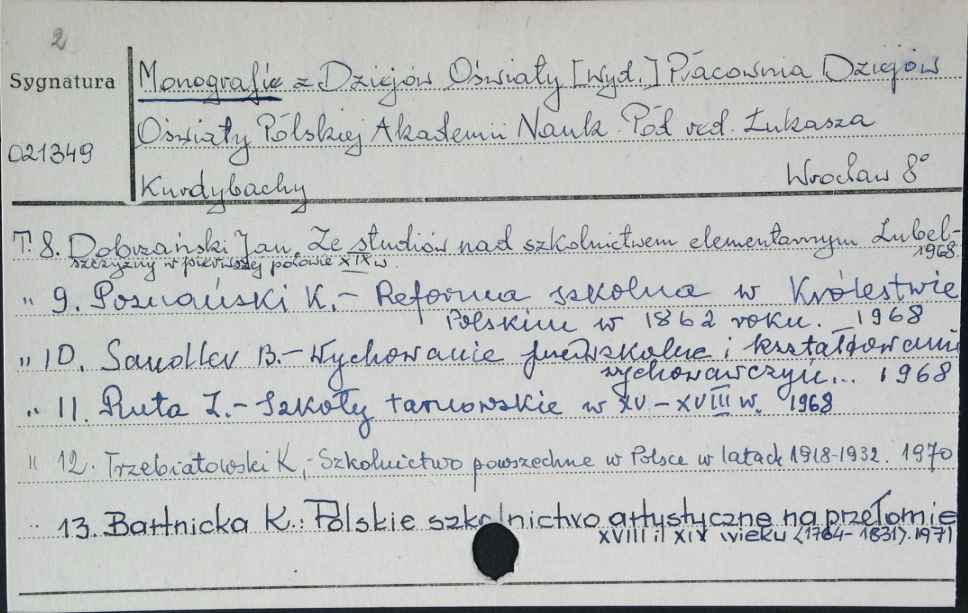 2
Sygnatura Monografie z Dziejów Oświaty [Wyd.] Pracownia Dziejów
021349 Oświaty Pólskiej Akademii Nauk. Pod red. Łukasza
Kurdybachy Wrocław 8°
T. 8. Dobrzański Jan. Ze studiów nad szkolnictwem elementarnym Lubel-
szczyzny w pierwszej połowie XIX w. 1968.
" 9. Poznański K. - Reforma szkolna w Królestwie
Polskim w 1862 roku. 1968
" 10. Sandler B. - Wychowanie przedszkolne i kształtowanie
wychowawczyń... 1968
" 11. Ruta Z. - Szkoły tarnowskie w XV - XVIII w. 1968
" 12. Trzebiatowski K, - Szkolnictwo powszechne w Polsce w latach 1918-1932. 1970
" 13. Bartnicka K.: Polskie szkolnictwo artystyczne na przełomie
XVIII i XIX wieku (1764 - 1831). 1971